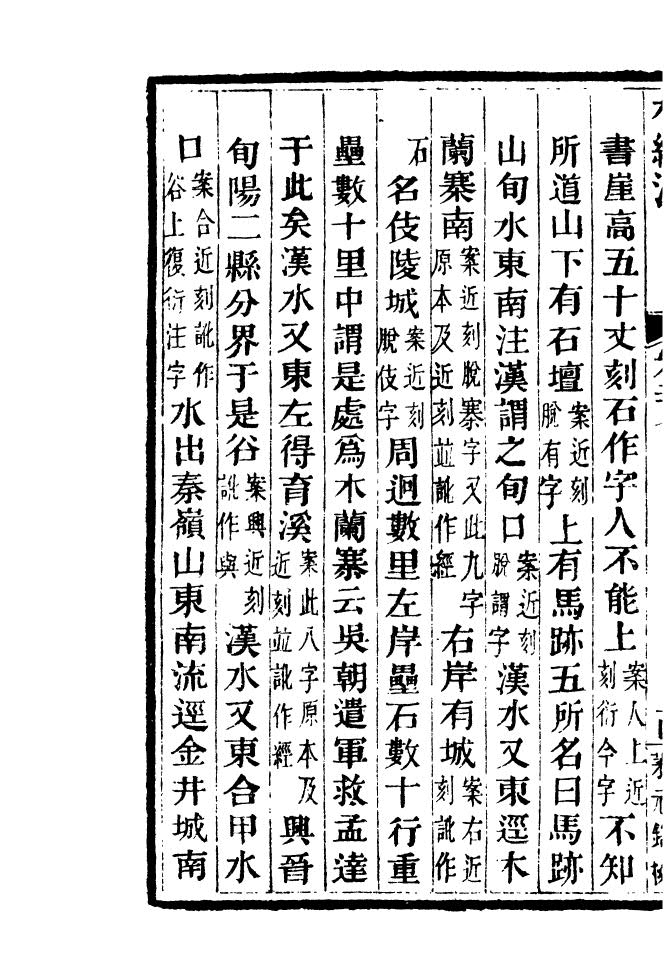 水經注
書崖高五十丈刻石作字人不能上案人上近刻衍今字不知
所道山下有石壇案近刻脫有字上有馬跡五所名曰馬跡
山旬水東南注漢謂之旬口案近刻脫謂字漢水又東逕木
蘭寨南案近刻脫寨字又此九字原本及近刻並訛作經右岸有城案右近刻訛作
石名伎陵城案近刻脫伎字周迴數里左岸壘石數十行重
壘數十里中謂是處爲木蘭寨云吳朝遣軍救孟達
于此矣漢水又東左得育溪案此八字原本及近刻並訛作經興晉
旬陽二縣分界于是谷案興近刻訛作與漢水又東合甲水
口案合近刻訛作谷上復衍注字水出秦嶺山東南流逕金井城南